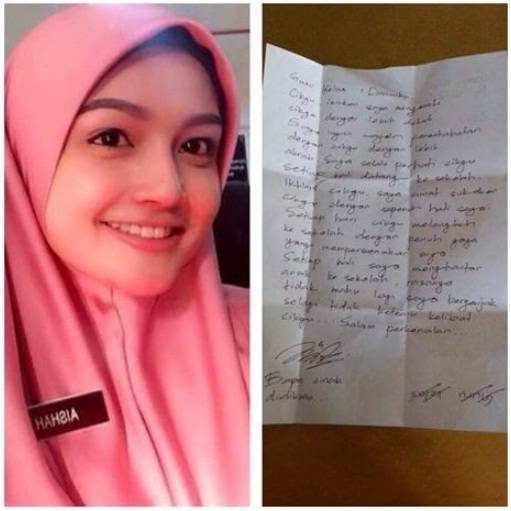 AISHAH
Guru Kelas :
Cikgu izinkan saya mengenali
cikgu dengan lebih dekat
Saya ingin persahabatan
dengan cikgu dengan lebih
akrab Saya selalu perhati cikgu
setiap kali datang ke sekolah.
Ikhlas cikgu, saya amat sukakan
cikgu dengan sepenuh hati saya.
Setiap hari cikgu melangkah
ke sekolah dengan penuh gaya
yang mempersonakan saya
Setiap kali saya menghantar
anak ke sekolah, rasanya
tidak mahu lagi saya berganjak
selagi tidak ketemu kelibat
cikgu... Salam perkenalan.
Bapa anak
didikmu